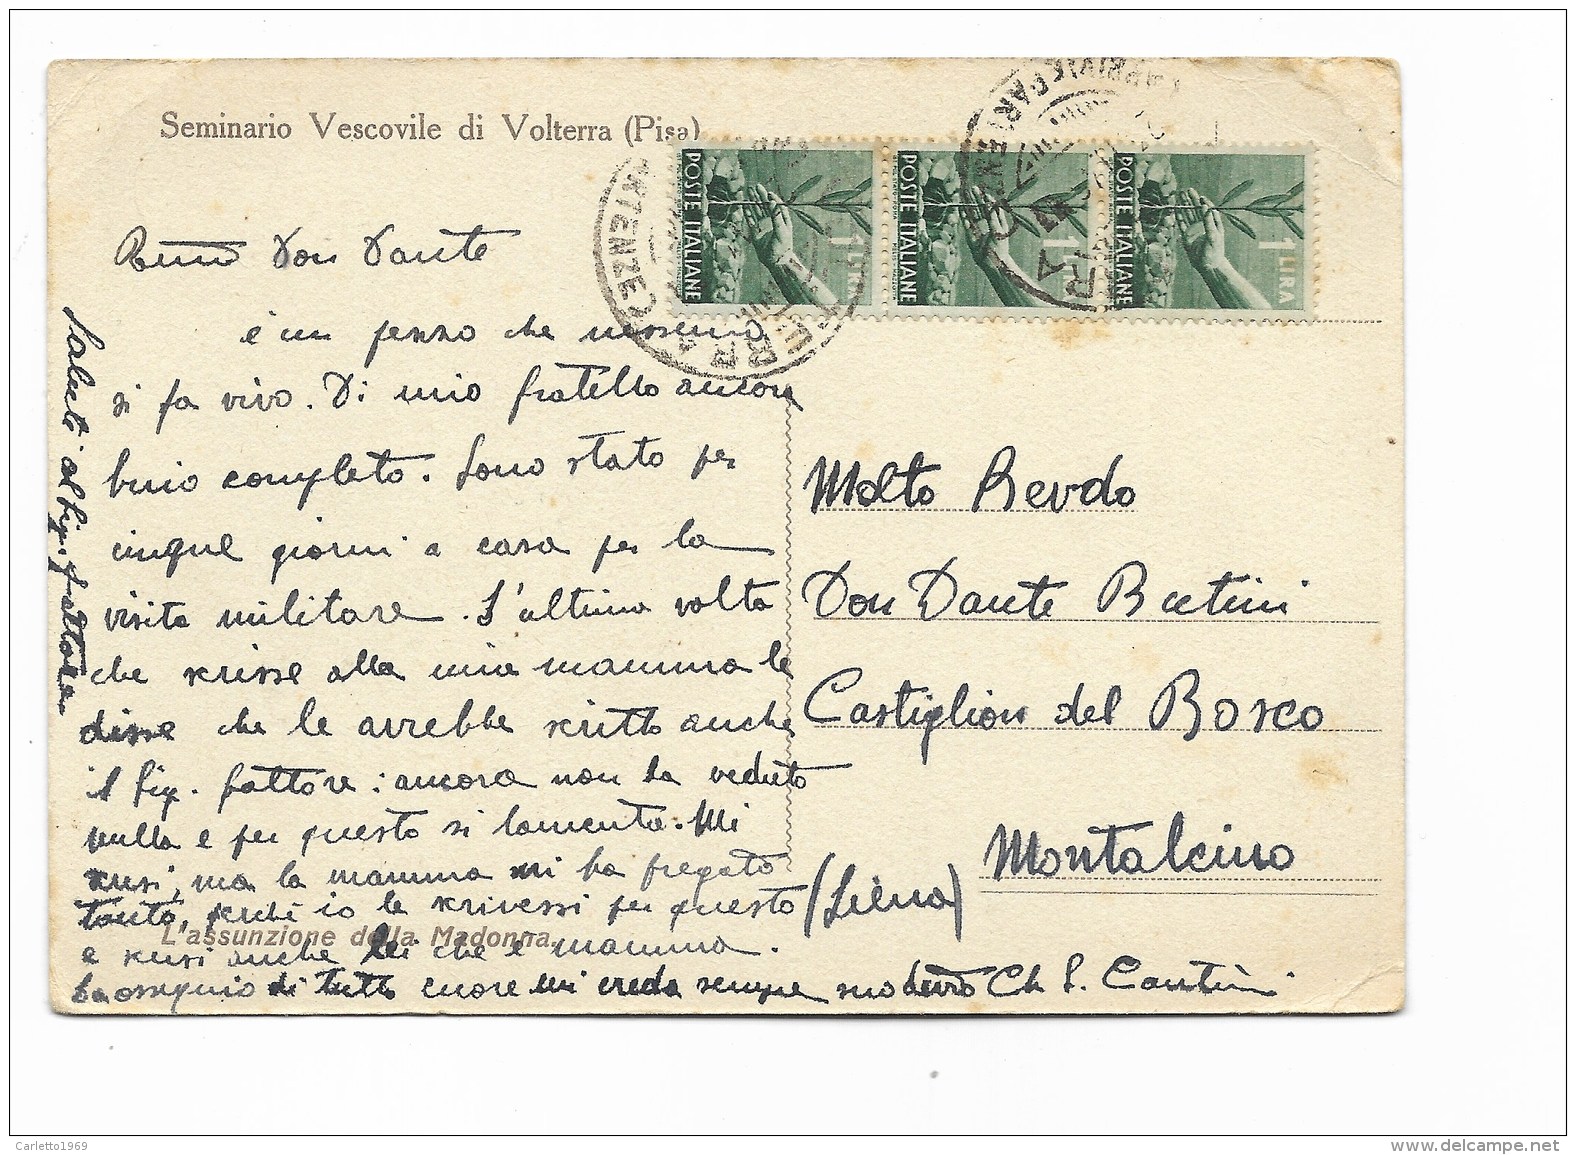 Seminario Vescovile di Volterra (Pisa)
POSTE ITALIANE
1 LIRA
POSTE ITALIANE
1 LIRA
POSTE ITALIANE
1 LIRA
Don Dante
è un pezzo che nessuno
si fa vivo. Di mio fratello ancora
buio completo. Sono stato per
cinque giorni a casa per la
visita militare. L'ultima volta
che scrisse alla mia mamma le
disse che le avrebbe scritto anche
il Sig. fattore: ancora non ha veduto
nulla e per questo si lamenta. Mi
scusi, ma la mamma mi ha pregato
tanto, perché io le scrivessi per questo
e scusi anche lei che è mamma.
L'assunzione della Madonna.
La ossequio di tutto cuore mi creda sempre suo devto Ch. S. Cantini
Saluti al Sig. fattore
Molto Revdo
Don Dante Butini
Castiglion del Bosco
Montalcino
(Siena)
Carletto1969
www.delcampe.net